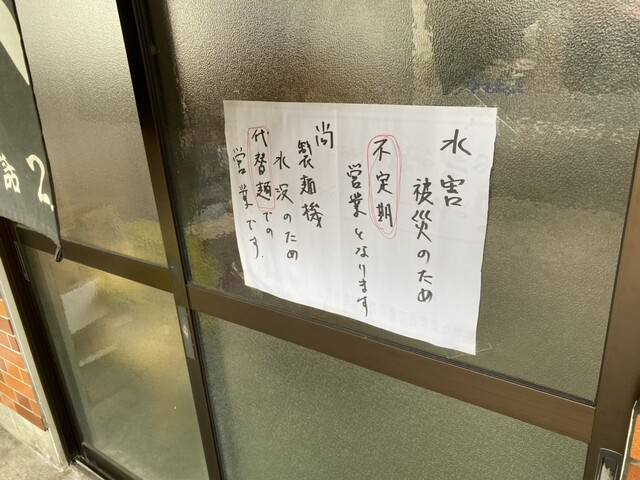 水害
被災のため
不定期
営業となります
尚
製麺機
水没のため
代替麺での
営業です.
話 2